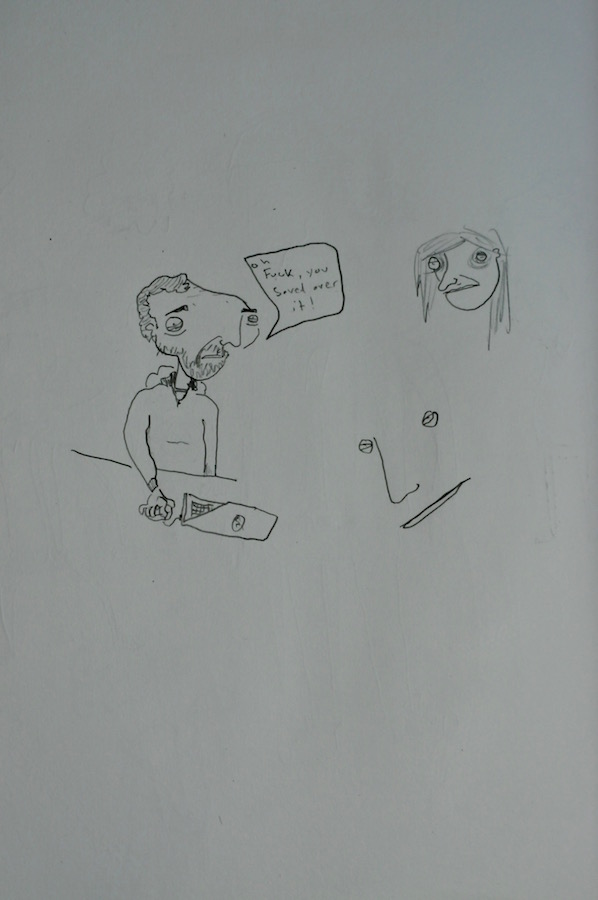 oh
Fuck, you
saved over
it!